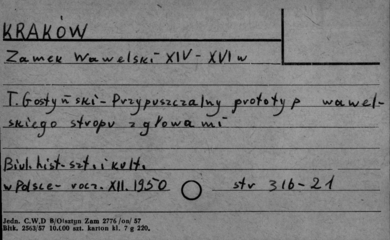 KRAKÓW
Zamek Wawelski XIV - XVI w
T. Gostyński - Przypuszczalny prototyp wawel-
skiego stropu z głowami
Biul. hist. szt. i kult.
w Polsce - rocz. XII. 1950 str 316-21
Jedn. C.W.D B/Olsztyn Zam 2776 /oa/ 57
Bltk. 2563/57 10.000 szt. karton kl. 7 g 220.